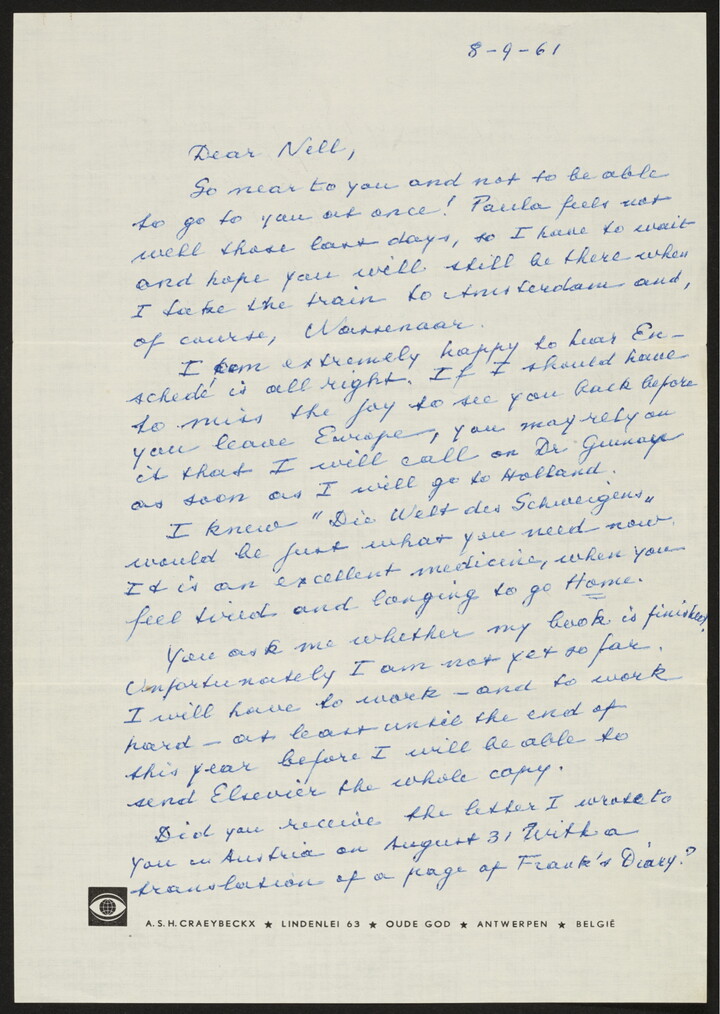 8-9-61
Dear Nell,
So near to you and not to be able
to go to you at once! Paula feels not
well those last days, so I have to wait
and hope you will still be there when
I take the train to Amsterdam and,
of course, Wassenaar.
I am extremely happy to hear En-
schedé is all right. If I should have
to miss the joy to see you back before
you leave Europe, you may rely on
it that I will call on Dr
as soon as I will go to Holland.
I knew "Die Welt des Schweigens"
would be just what you need now.
It is an excellent medicine, when you
feel tired and longing to go Home.
You ask me whether my book is finished?
Unfortunately I am not yet so far.
I will have to work - and to work
hard - at least until the end of
this year before I will be able to
send Elsevier the whole copy.
Did you receive the letter I wrote to
you in Austria on August 31 With a
translation of a page of Frank's Diary?
A.S.H. CRAEYBECKX ★ LINDENLEI 63 ★ OUDE GOD ★ ANTWERPEN ★ BELGIË